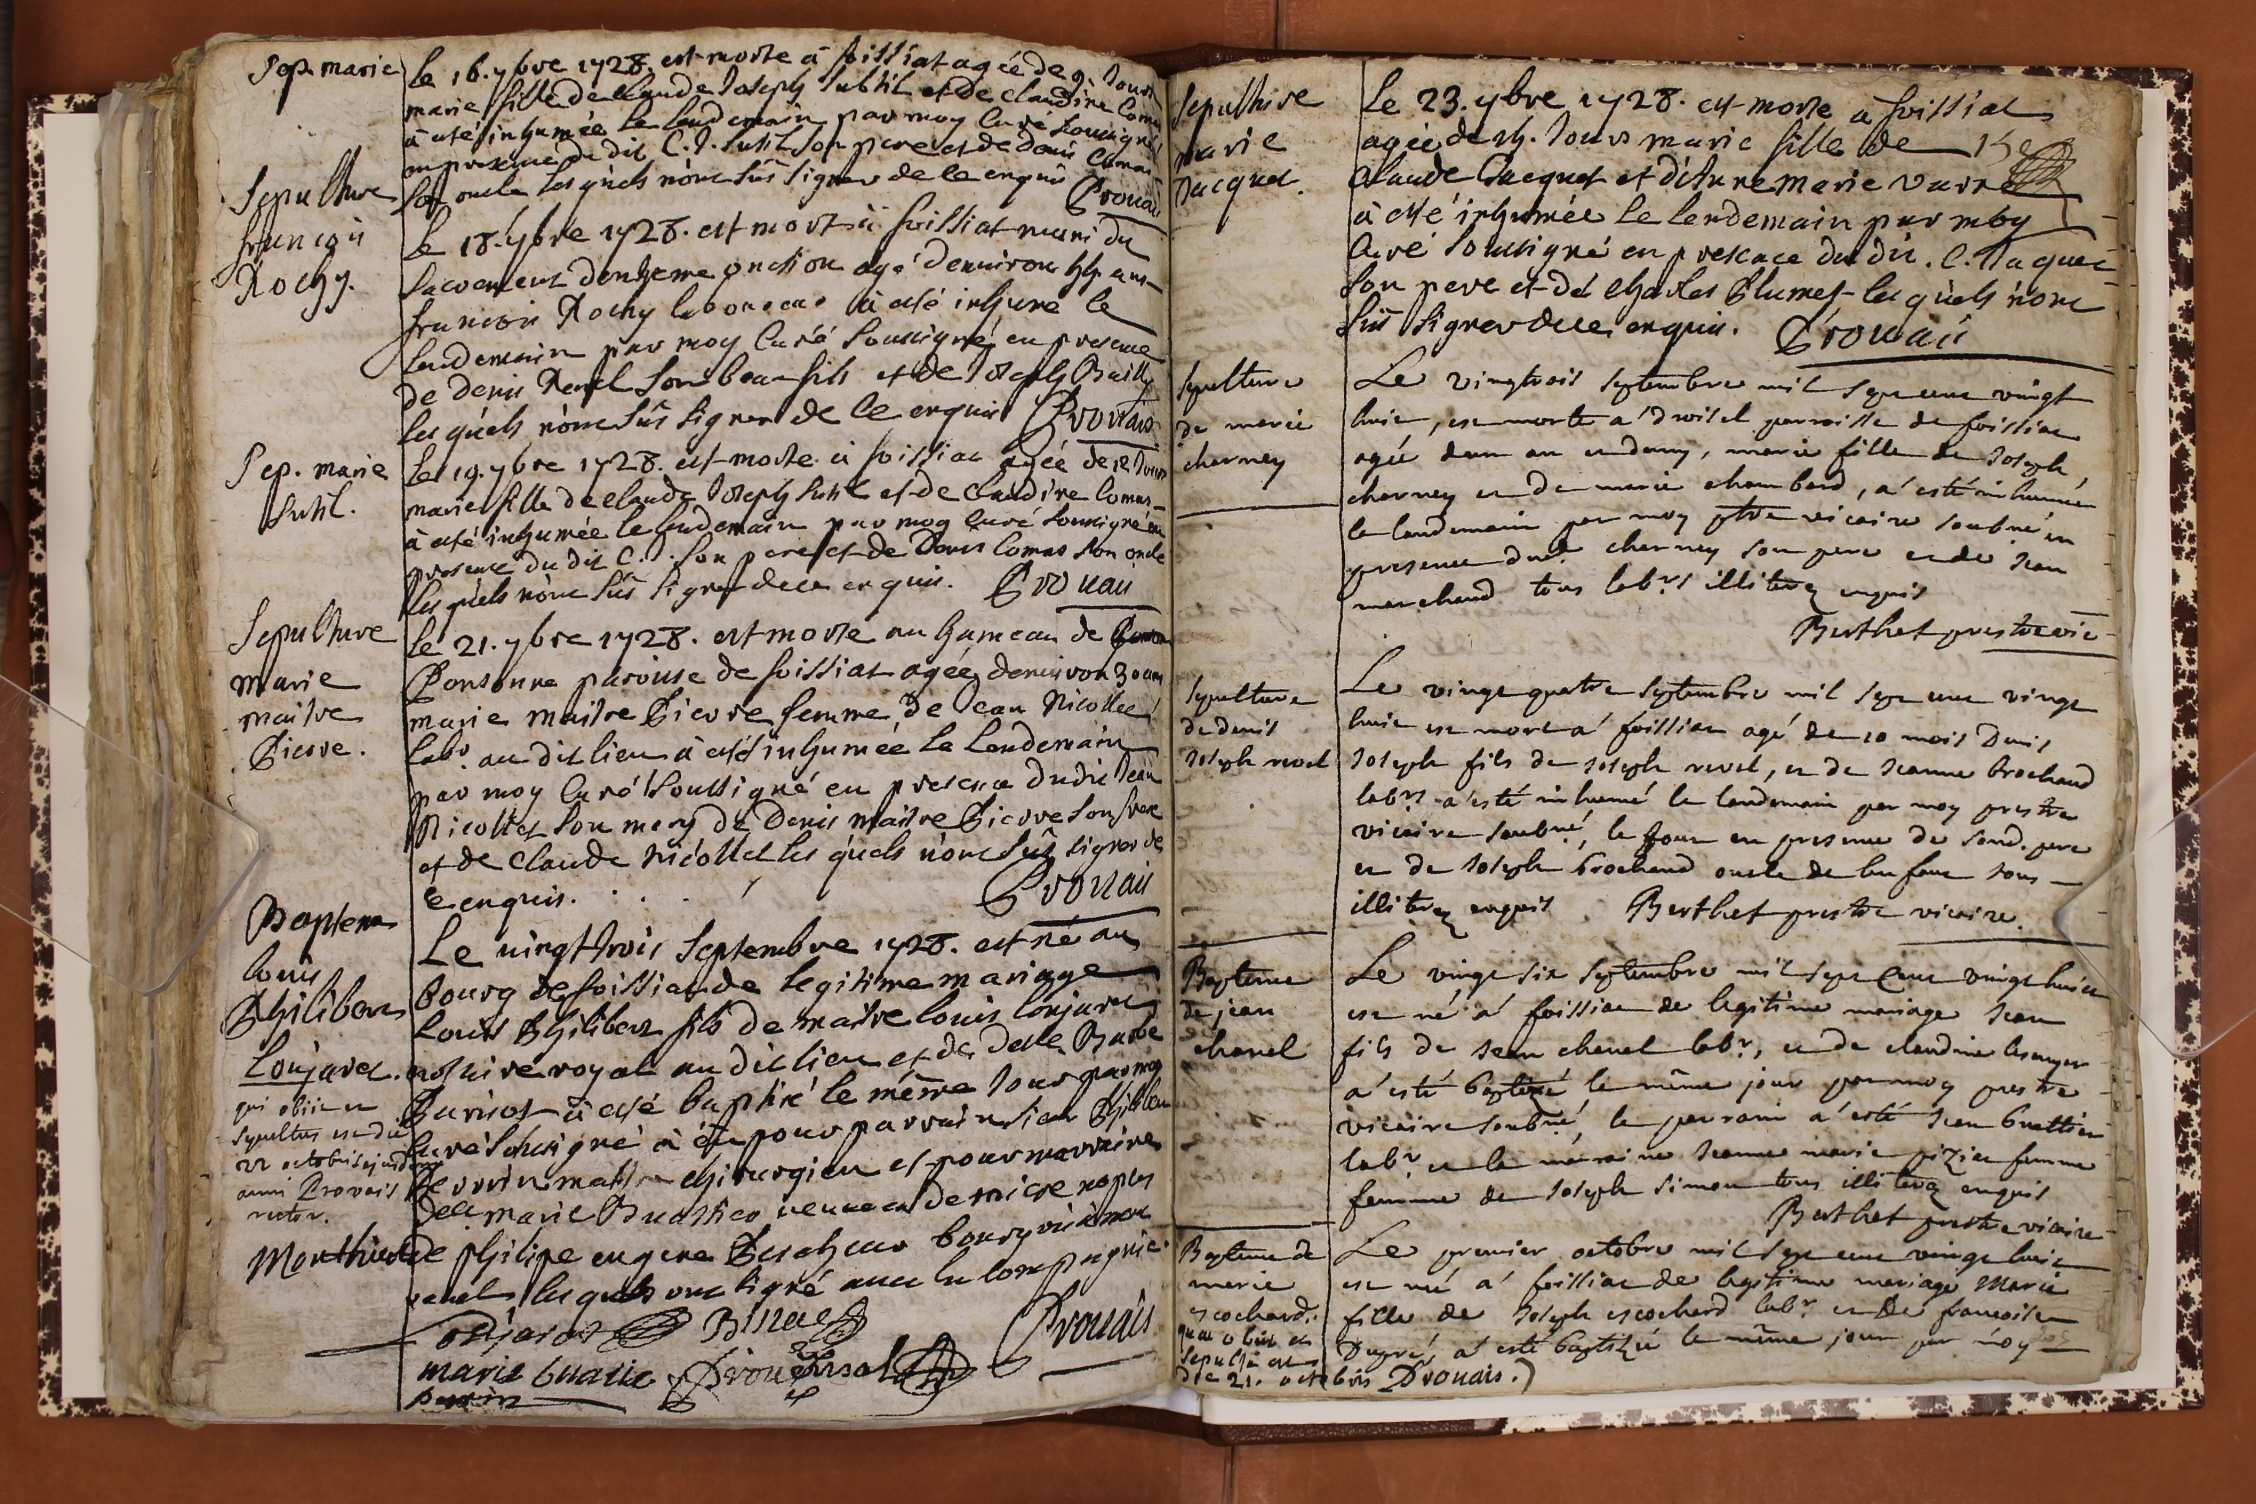 Sep. marie
le 16. 7bre 1728. est morte à foissiat agée de 9. Jours
marie fille de Claude Joseph Subtil et de Claudine Comas
à été inhumée le lendemain par moy Curé soussigné
en presence du dit C. J. Sutil son pere et de denis Comas
son oncle lesquels n'ont sus signer de ce enquis Drouais
Sepulture
francois
Rochy.
le 18. 7bre 1728. est mort à foissiat muni du
sacrement d'extreme onction agé denviron ans
francois Rochy laboureur à été inhumé le
lendemain par moy Curé soussigné en presence
de denis Revel son beau fils et de Joseph Bailly
les quels n'ont sus signer de ce enquis Drouais
Sep. marie
Sutil.
le 19. 7bre 1728. est morte à foissiat agée de 12 Jours
marie fille de Claude Joseph Sutil et de Claudine Comas
à été inhumée le lendemain par moy Curé soussigné en
presence du dit C. J. son pere et de Denis Comas son oncle
les quels n'ont sus signer de ce enquis. Drouais
Sepulture
marie
maitre
Pierre.
le 21. 7bre 1728. est morte au hameau de
Ponsonne paroisse de foissiat agée denviron 30 ans
marie maitre Pierre femme de Jean Nicollet
labr. au dit lieu à été inhumée le Lendemain
par moy Curé soussigné en presence dudit Jean
Nicollet son mary de Denis maitre Pierre son frere
et de Claude Nicollet les quels n'ont sus signer de
ce enquis. Drouais
Bapteme
louis
Philibert
Lonjaret.
qui obiit et
sepultus est die
22 octobris ejusdem
anni Drovais
rector.
Le vingt trois Septembre 1728. est né au
bourg de foissiat de legitime mariage
Louis Philibert fils de maitre louis lonjaret
notaire royal au dit lieu et de delle
à été baptisé le même Jour par moy
Curé soussigné à eu pour parrain sieur Philibert
perrin maitre chirurgien et pour marraine
delle marie
de philipe eugene bourg
les quels ont signé avec la compagnie.
Drouais
marie
perrin
Sepulture
marie
Jacquet.
Le 23. 7bre 1728. est morte a foissiat
agée de Jours marie fille de
Claude Jacquet et d'étiennemarie
à été inhumée le lendemain par moy
Curé soussigné en presence du dit. C. Jaquet
son pere et de charles Plumet les quels n'ont
sus signer de ce enquis. Drouais
Sepulture
de marie
charney
Le vingtrois septembre mil sept cent vingt
huit, est morte a droisel parroisse de foissiat
agée dun an et demy, marie fille de Joseph
charney et de marie chambard, a esté inhumée
le landemain par moy ptre vicaire soubné en
presence dud. charney son pere et de Jean
marchand tous labrs illiterez enquis
Berthet prestre vic
Sepulture
de denis
Joseph revel
Le vingt quatre septembre mil sept cent vingt
huit est mort a foissiat agé de 10 mois Denis
Joseph fils de Joseph revel, et de Jeanne brochand
labrs a esté inhumé le landemain par moy prestre
vicaire soubné, le jour en presence de sond. pere
et de Joseph brochand oncle de lenfant tous
illiterez enquis Berthet prestre vicaire.
Bapteme
de jean
chanel
Le vingt six septembre mil sept cent vingt huict
est né a foissiat de legitime mariage Jean
fils de Jean chanel labr, et de claudine
a esté baptizé le même jour par moy prestre
vicaire soubné, le parrain a esté Jean
labr et la maraine Jeanne marie femme
femme de Joseph Simon tous illiterez enquis
Berthet prestre vicaire
Bapteme de
marie
escochard.
quae obiit et
sepulta est
die 21. octobris Drouais.
Le premier octobre mil sept cent vingt huit
est né a foissiat de legitime mariage Marie
fille de Joseph escochard labr et de francoise
Dupré, a esté baptizée le même jour par moy